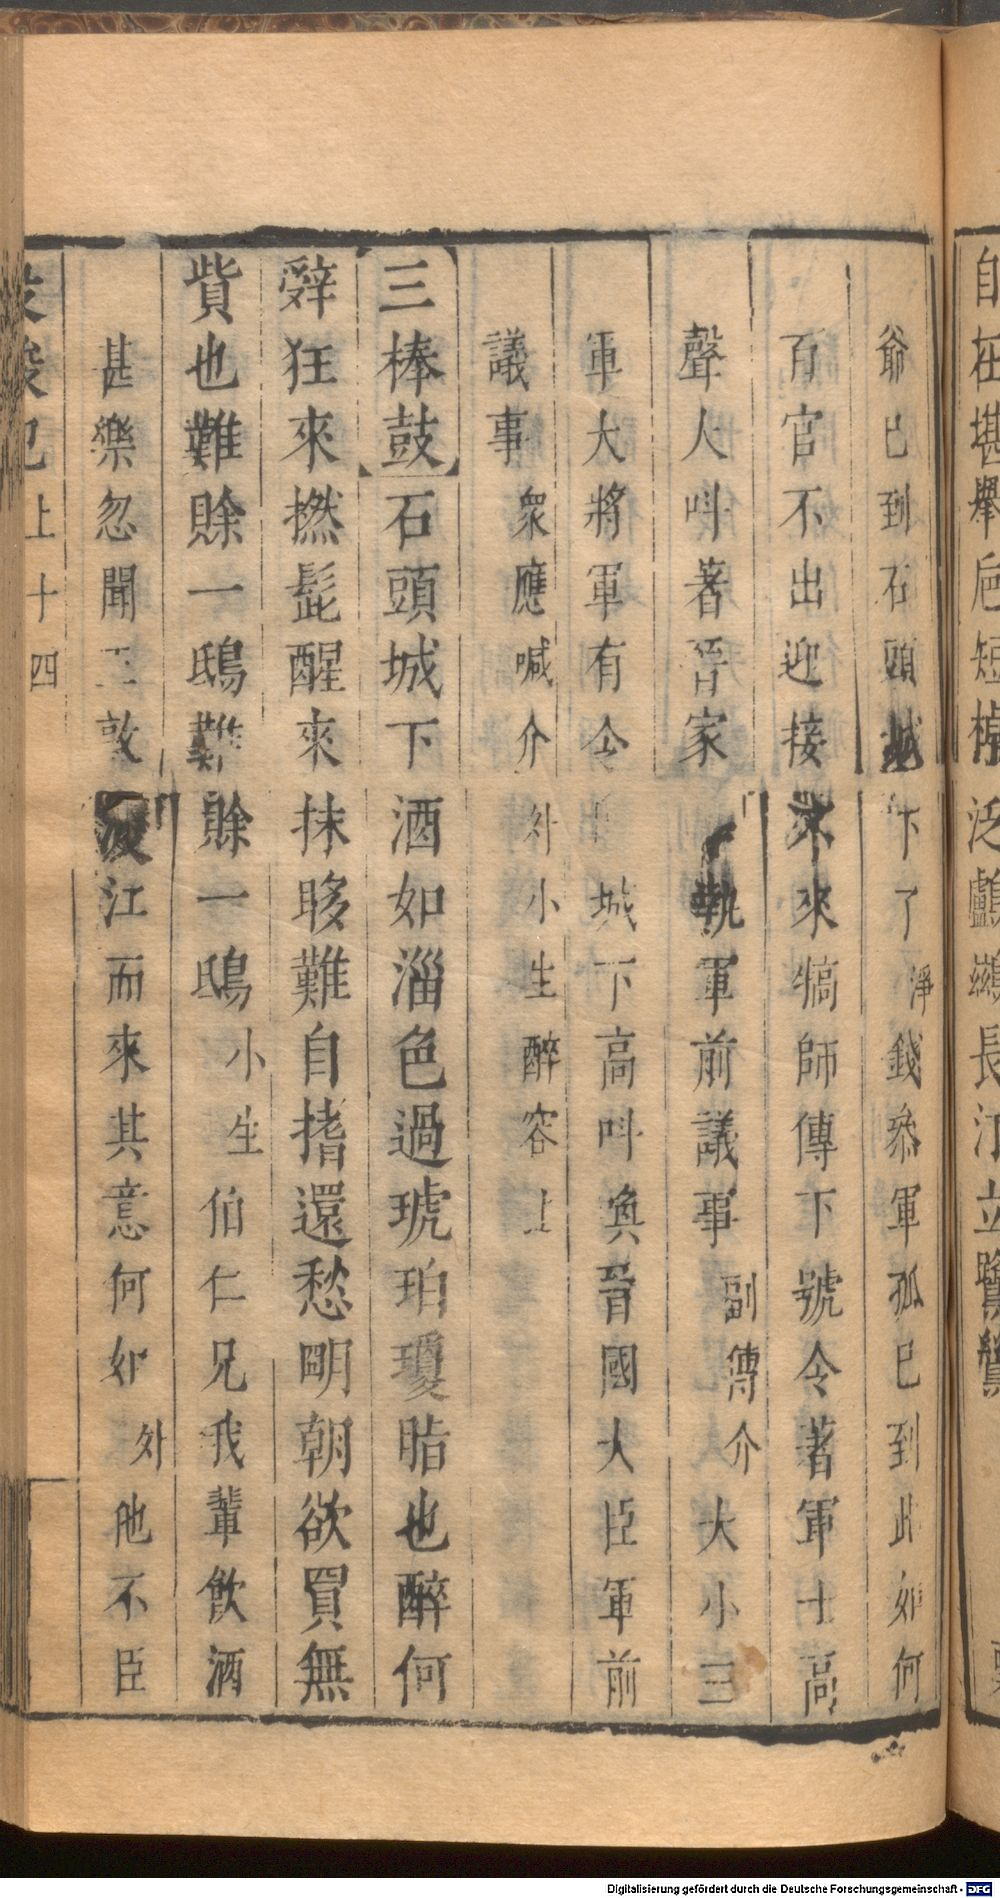 自在堪舉卮短棹泛鸕鷀長汀立鷺鷥
爺已到石頭城下了淨錢叅軍孤已到此如何
百官不出迎接不來犒師傳下號令著軍士高
聲人叫著晉家執軍前議事副傳介大小三
軍大將軍有令 城下高叫與晉國大臣軍前
議事衆應喊介外小生醉容上
三棒鼓石頭城下酒如淄色過琥珀瓊脂也醉何
辭狂來撚髭醒來抹眵難自揩還愁明朝欲買無
貲也難賒一鴟難賒一鴟小生伯仁兄我輩飲酒
甚樂忽聞王敦渡江而來其意何如外他不臣
上十四
Digitalisierung gefördert durch die Deutsche Forschungsgemeinschaft - DFG